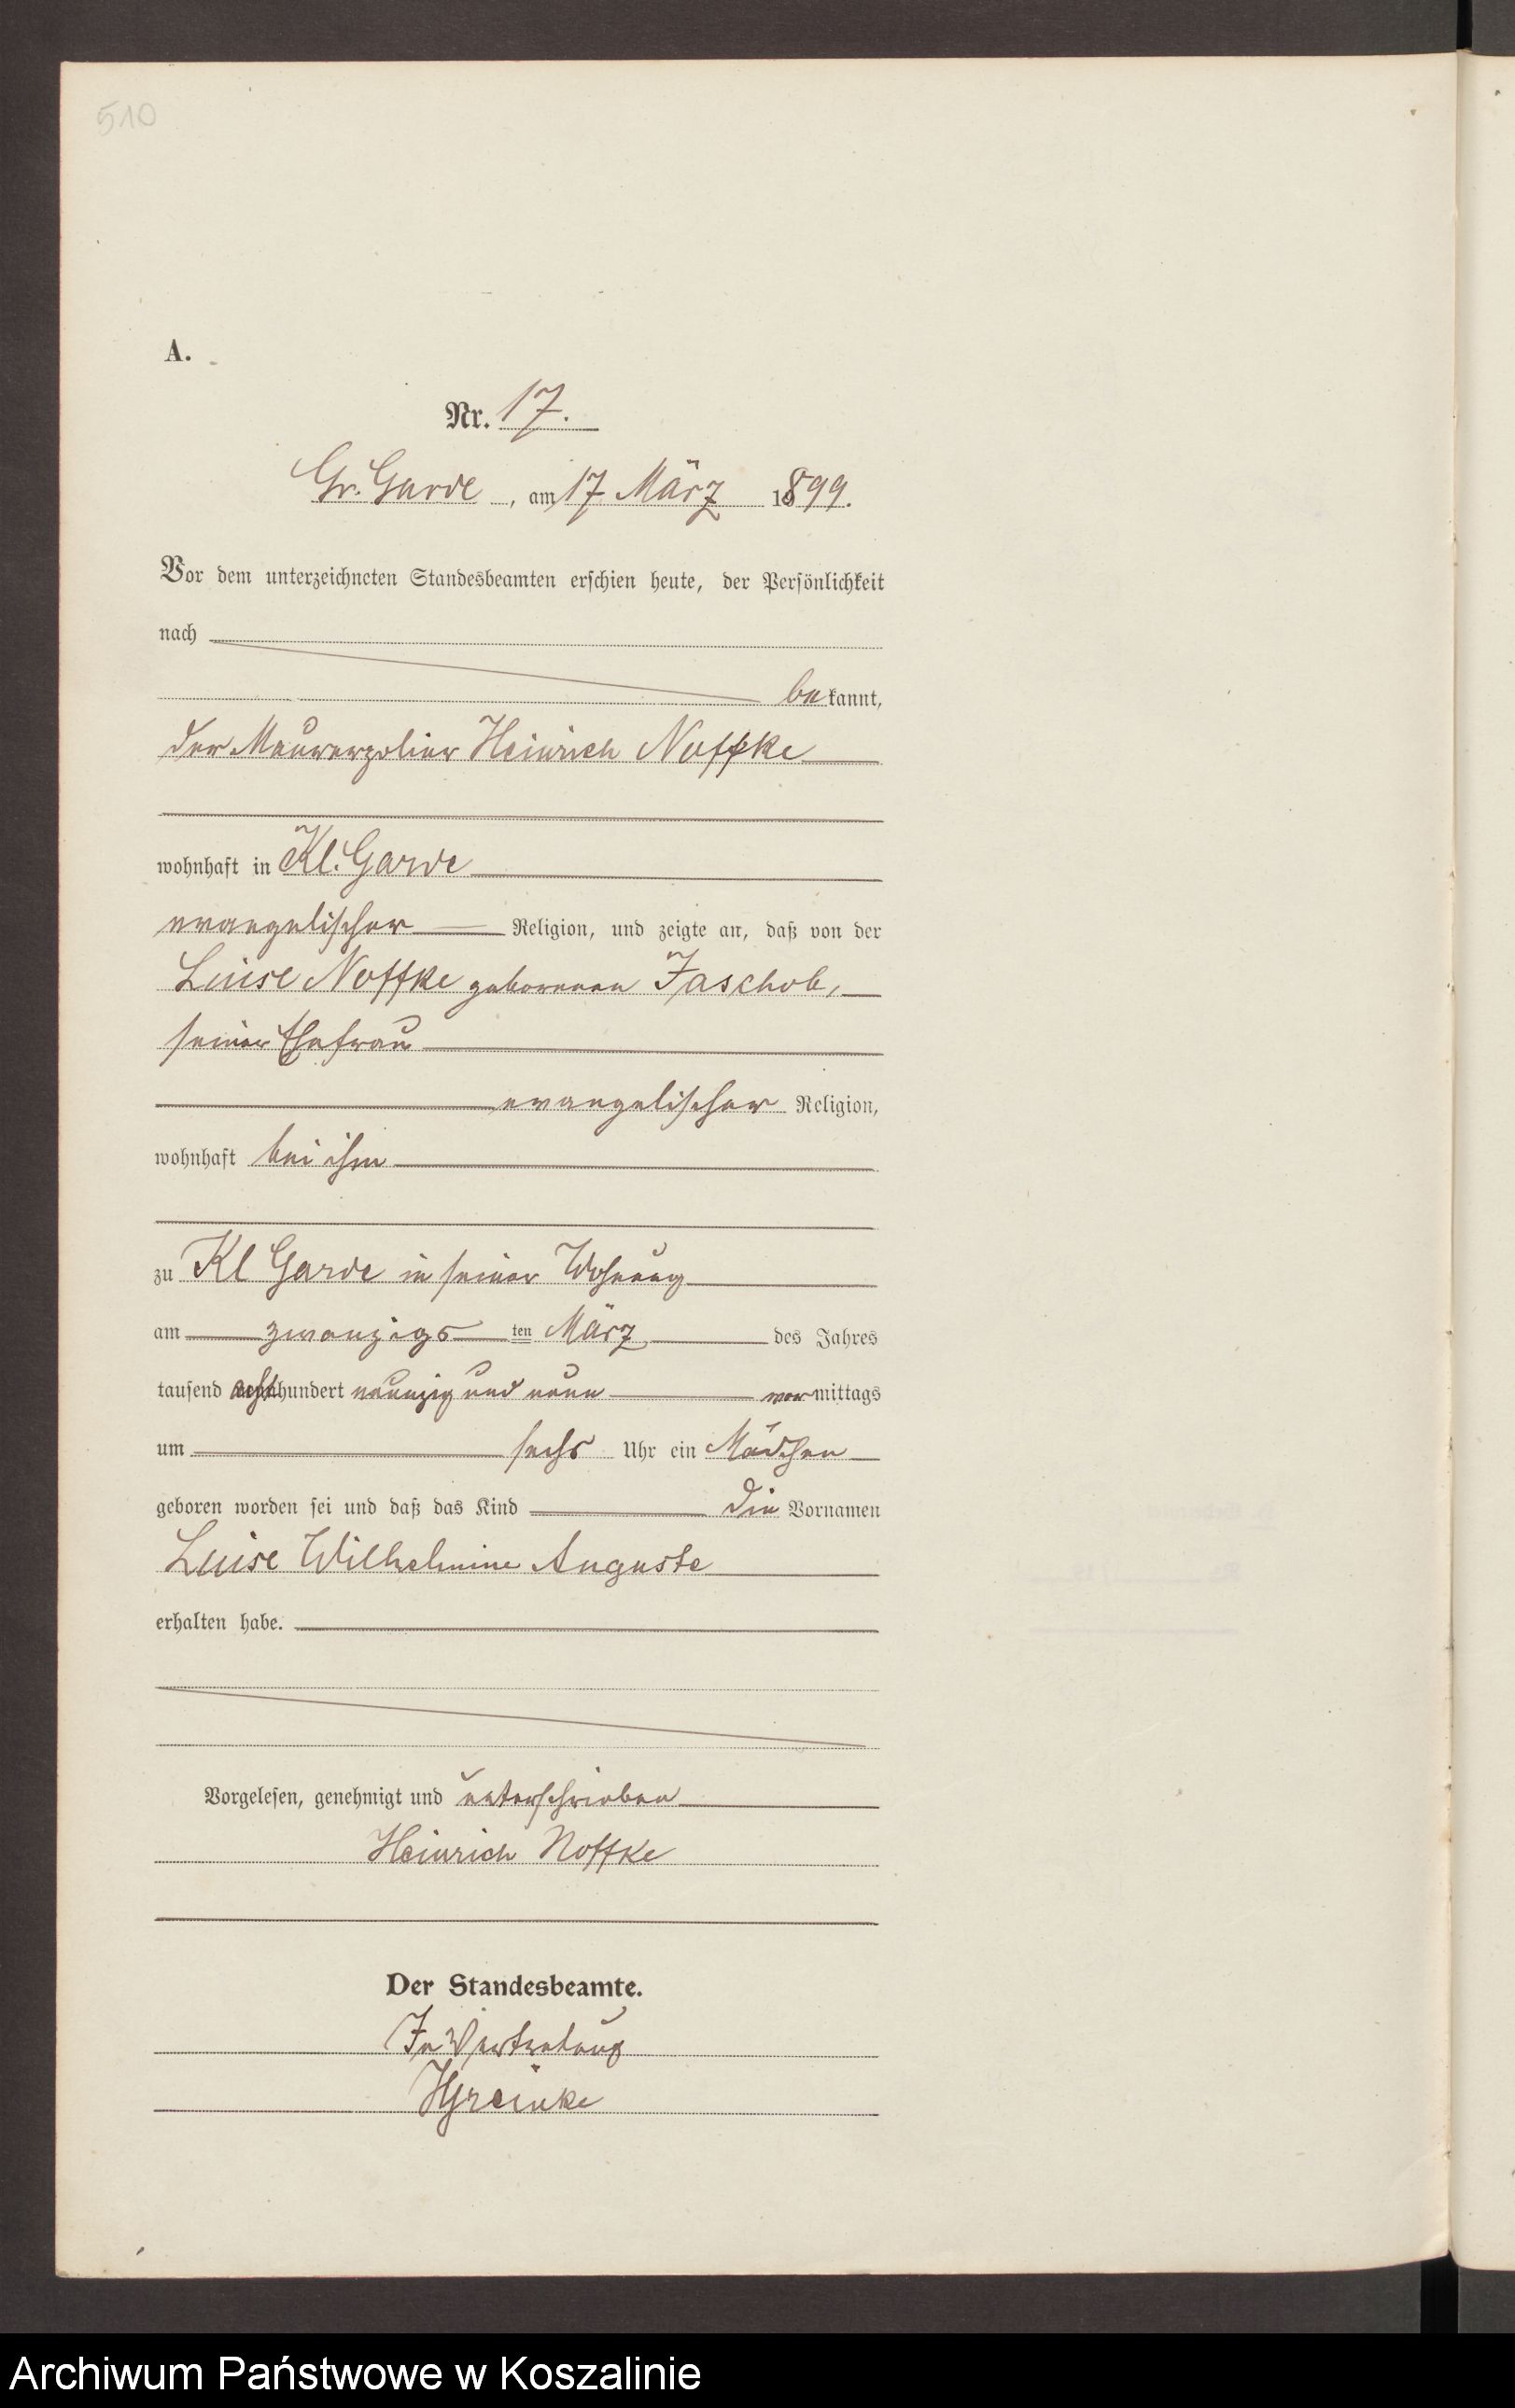 510
A.
Nr. 17.
Gr. Garde, am 17 März 1899.
Vor dem unterzeichneten Standesbeamten erschien heute, der Persönlichkeit
nach
bekannt,
der Maurerpolier Heinrich Noffke
wohnhaft in Kl. Garde
evangelischer Religion, und zeigte an, daß von der
Luise Noffke geborenen Jaschob,
seiner Ehefrau
evangelischer Religion,
wohnhaft bei ihm
zu Kl Garde in seiner Wohnung
am zwanzigs ten März des Jahres
tausend achthundert neunzig und neun vormittags
um sechs Uhr ein Mädchen
geboren worden sei und daß das Kind die Vornamen
Luise Wilhelmine Auguste
erhalten habe.
Vorgelesen, genehmigt und unterschrieben
Heinrich Noffke
Der Standesbeamte.
In Vertretung
Archiwum Państwowe w Koszalinie